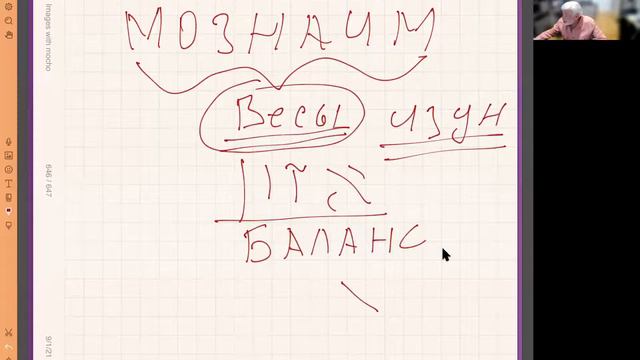 МОЗНАИМ
Весы ИЗУН
איזון
БАЛАНС
Images with mocho
646 / 647
9/1/21